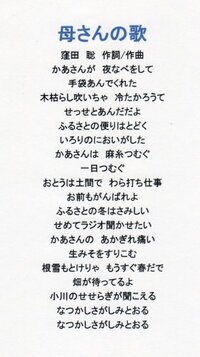 母さんの歌
窪田 聡 作詞/作曲
かあさんが 夜なべをして
手袋あんでくれた
木枯らし吹いちゃ 冷たかろうて
せっせとあんだだよ
ふるさとの便りはとどく
いろりのにおいがした
かあさんは 麻糸つむぐ
一日つむぐ
おとうは土間で わら打ち仕事
お前もがんばれよ
ふるさとの冬はさみしい
せめてラジオ聞かせたい
かあさんの あかぎれ痛い
生みそをすりこむ
根雪もとけりゃ もうすぐ春だで
畑が待ってるよ
小川のせせらぎが聞こえる
なつかしさがしみとおる
なつかしさがしみとおる